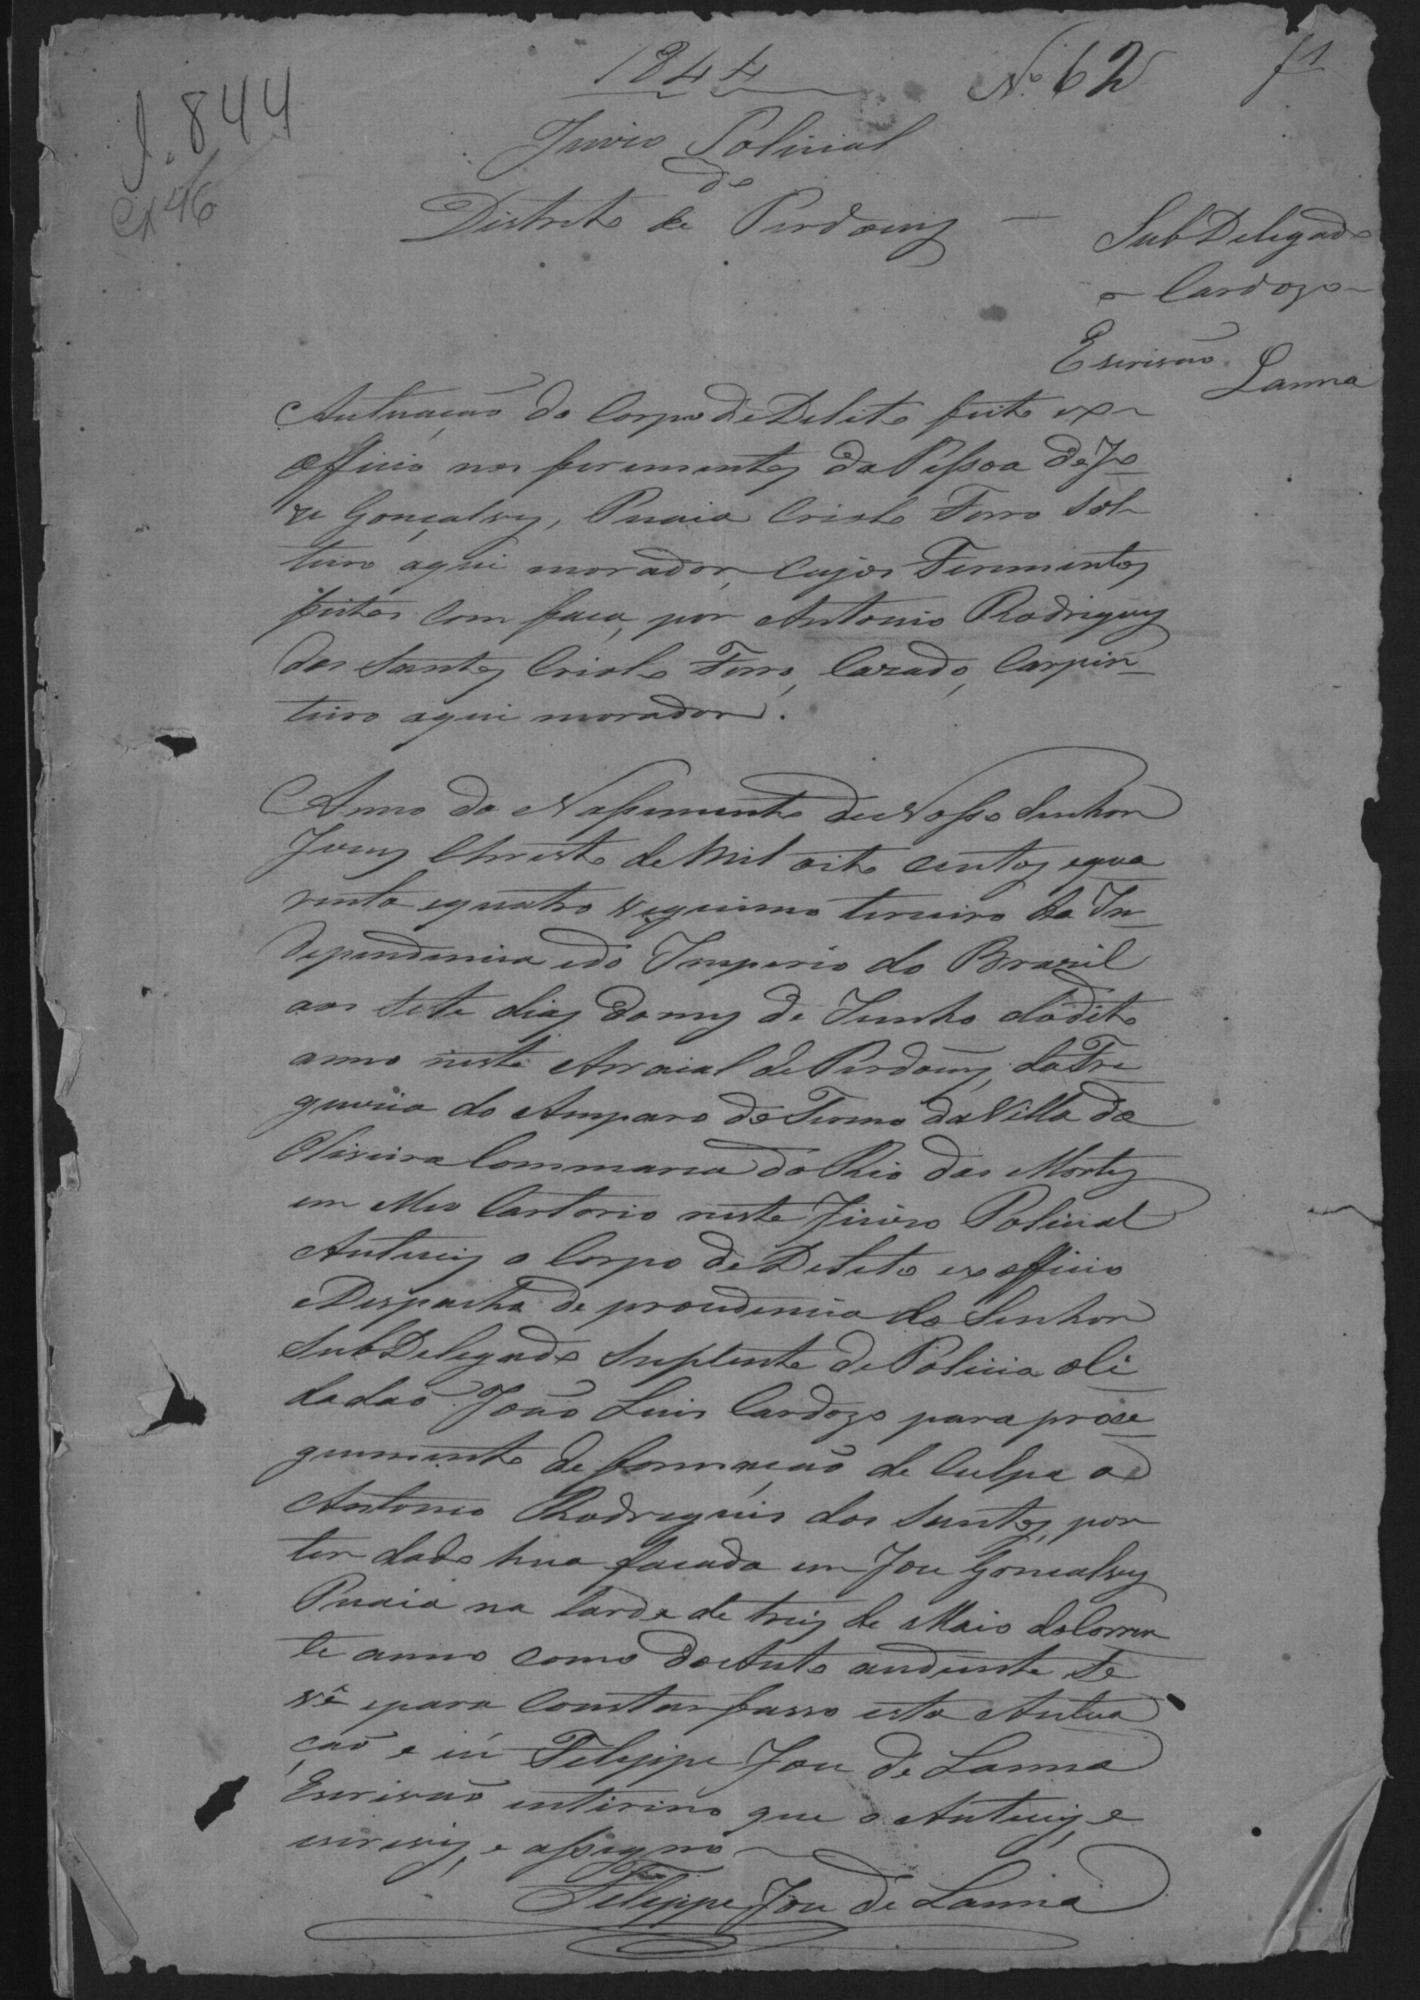 1844
Nº 62
f 1
J. 844
CX 46
Juizo Policial
do
Districto de Perdoeins
SubDelegado
Cardozo
Escrivão
Lanna
Autuação do Corpo de Delito feito ex
officio nos ferimentos da Pessoa de Jo
ze Gonçalvez, Puaia Criolo Forro Sol
teiro aqui morador, cujos Ferimentos
feitos com faca, por Antonio Rodriguez
dos Santos Criolo Forro, Cazado, Carpin
teiro aqui morador.
Anno do Nassimento de Nosso Senhor
Jezus Christo de Mil oito centos equa
renta equatro vigezimo terceiro da In
dependencia edo Imperio do Brazil
aos sete dias do mez de Junho dodito
anno neste Arraial de Perdoeins, da Fre
guezia do Amparo do Termo da Villa de
Oliveira Commarca do Rio das Mortes
em Meu Cartorio neste Juizo Policial
Autuei o Corpo de Delito ex officio
eDespacho de proudencia do Senhor
SubDelegado Suplente de Policia o Ci
dadão João Luis Cardozo para prose
guimento de formação de Culpa a
Antonio Rodrigues dos Santos, por
ter dado hua facada em Joze Goncalvez
Puaia na tarde de treis de Maio do Corren
te anno como do Auto audiente se
vê epara Constar fasso esta Autua
ção e eu Felippe Joze de Lanna
Escrivão intirino que o Autuei, e
escrevi, e assigno
Felippe Joze de Lanna